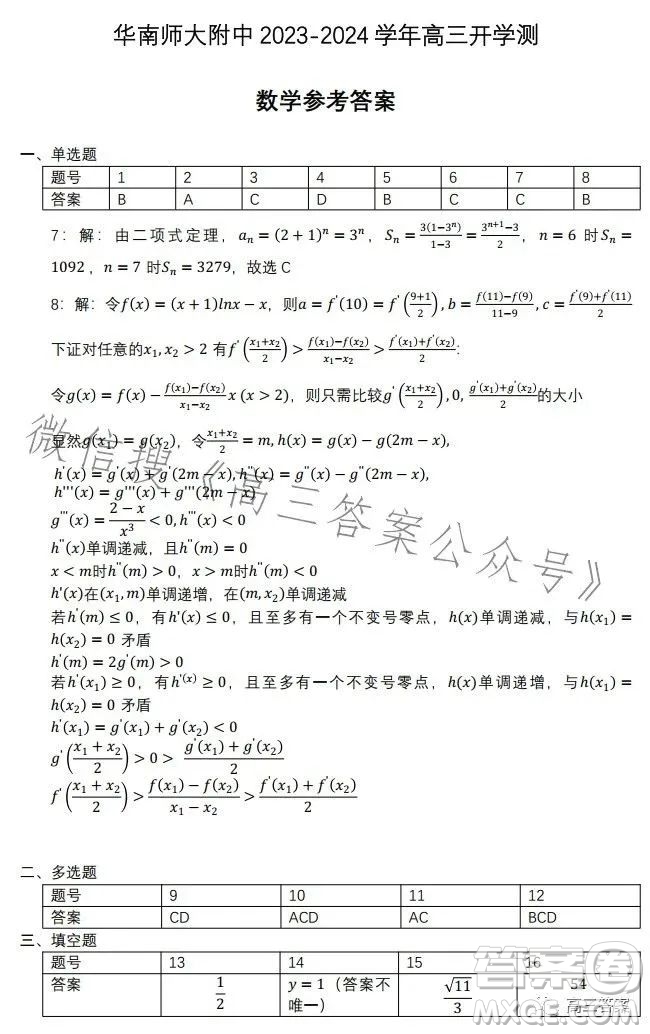 华南师大附中 2023-2024 学年高三开学测
数学参考答案
一、单选题
题号 1 2 3 4 5 6 7 8
答案 B A C D B C C B
7：解：由二项式定理，aₙ = (2 + 1)ⁿ = 3ⁿ，Sₙ = 3(1−3ⁿ)/(1−3) = (3ⁿ⁺¹−3)/2，n = 6 时Sₙ =
1092，n = 7 时Sₙ = 3279，故选 C
8：解：令f(x) = (x + 1)lnx − x，则a = f'(10) = f'((9+1)/2), b = (f(11)−f(9))/(11−9), c = (f'(9)+f'(11))/2
下证对任意的x₁, x₂ > 2 有f'((x₁+x₂)/2) > (f(x₁)−f(x₂))/(x₁−x₂) > (f'(x₁)+f'(x₂))/2:
令g(x) = f(x) − (f(x₁)−f(x₂))/(x₁−x₂) x (x > 2)，则只需比较g'((x₁+x₂)/2), 0, (g'(x₁)+g'(x₂))/2的大小
显然g(x₁) = g(x₂)，令(x₁+x₂)/2 = m, h(x) = g(x) − g(2m − x),
h'(x) = g'(x) + g'(2m − x), h''(x) = g''(x) − g''(2m − x),
h'''(x) = g'''(x) + g'''(2m − x)
g'''(x) = (2 − x)/x³ < 0, h'''(x) < 0
h''(x)单调递减，且h''(m) = 0
x < m时h''(m) > 0，x > m时h''(m) < 0
h'(x)在(x₁, m)单调递增，在(m, x₂)单调递减
若h'(m) ≤ 0，有h'(x) ≤ 0，且至多有一个不变号零点，h(x)单调递减，与h(x₁) =
h(x₂) = 0 矛盾
h'(m) = 2g'(m) > 0
若h'(x₁) ≥ 0，有h'⁽ˣ⁾ ≥ 0，且至多有一个不变号零点，h(x)单调递增，与h(x₁) =
h(x₂) = 0 矛盾
h'(x₁) = g'(x₁) + g'(x₂) < 0
g'((x₁ + x₂)/2) > 0 > (g'(x₁) + g'(x₂))/2
f'((x₁ + x₂)/2) > (f(x₁) − f(x₂))/(x₁ − x₂) > (f'(x₁) + f'(x₂))/2
微信搜《高三答案公众号》
二、多选题
题号 9 10 11 12
答案 CD ACD AC BCD
三、填空题
题号 13 14 15 16
答案 1/2 y = 1（答案不唯一） √11/3 54
答案圈
MXQE.COM
高三答案